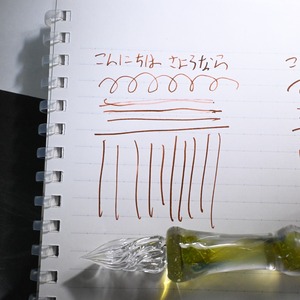 こんにちは さようなら
こ